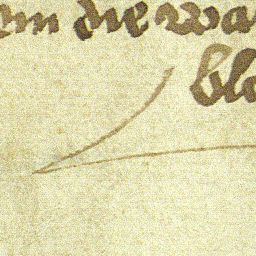 em die wa
blo